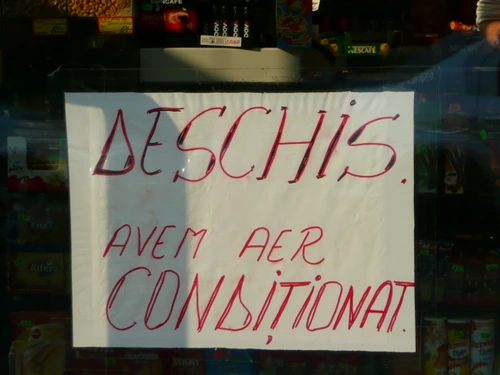 NESCAFE
DESCHIS.
AVEM AER
CONDIȚIONAT.